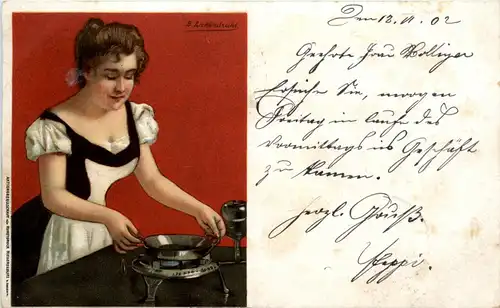 Den 12.11.02
Geehrte Frau Wolliger
Ersuche Sie, morgen
Freitag im Laufe des
Vormittags ins Geschäft
zu kommen.
herzl. Gruß.
Peppi.